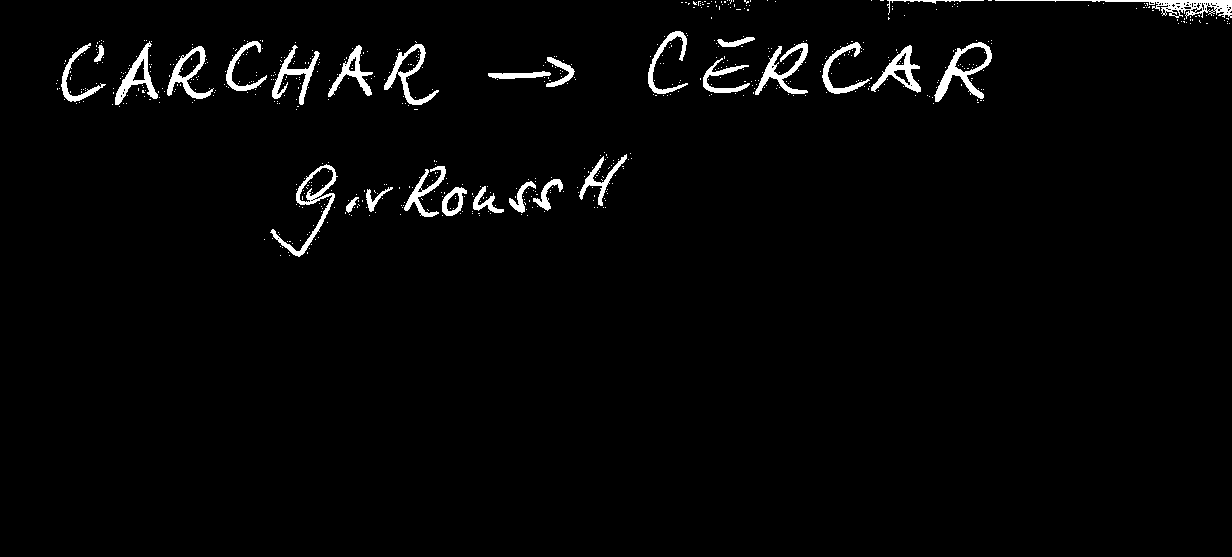 CARCHAR → CĒRCAR
G.v Rouss H